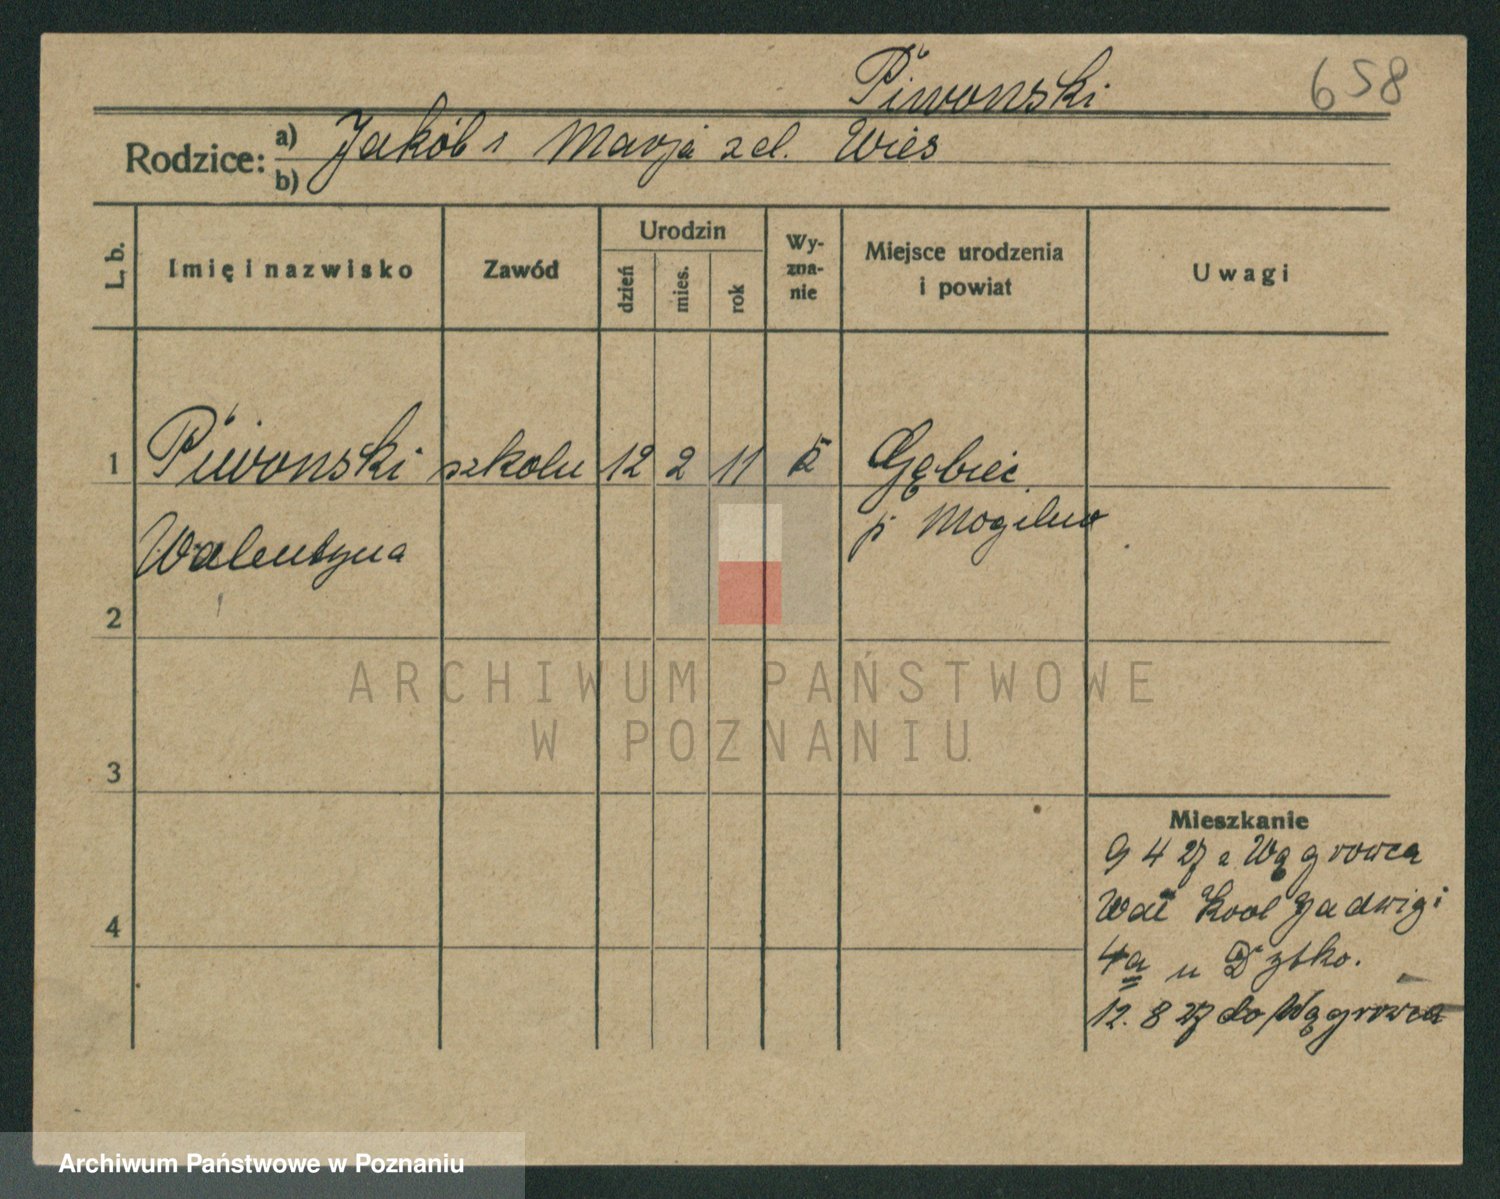 Piwonski 658
Rodzice: a) Jakób i Marja z d. Wies
b)
L. b. Imię i nazwisko Zawód Urodzin dzień mies. rok Wy-zna-nie Miejsce urodzenia i powiat Uwagi
1 Piwonski szkoln 12 2 11 k Gębiec
Walentyna p Mogilno
2
ARCHIWUM PAŃSTWOWE
W POZNANIU
3
Mieszkanie
9 4 27 z Wągrowca
Wał Jadwigi
4
4a u
12. 8 27 do Wągrowca
Archiwum Państwowe w Poznaniu